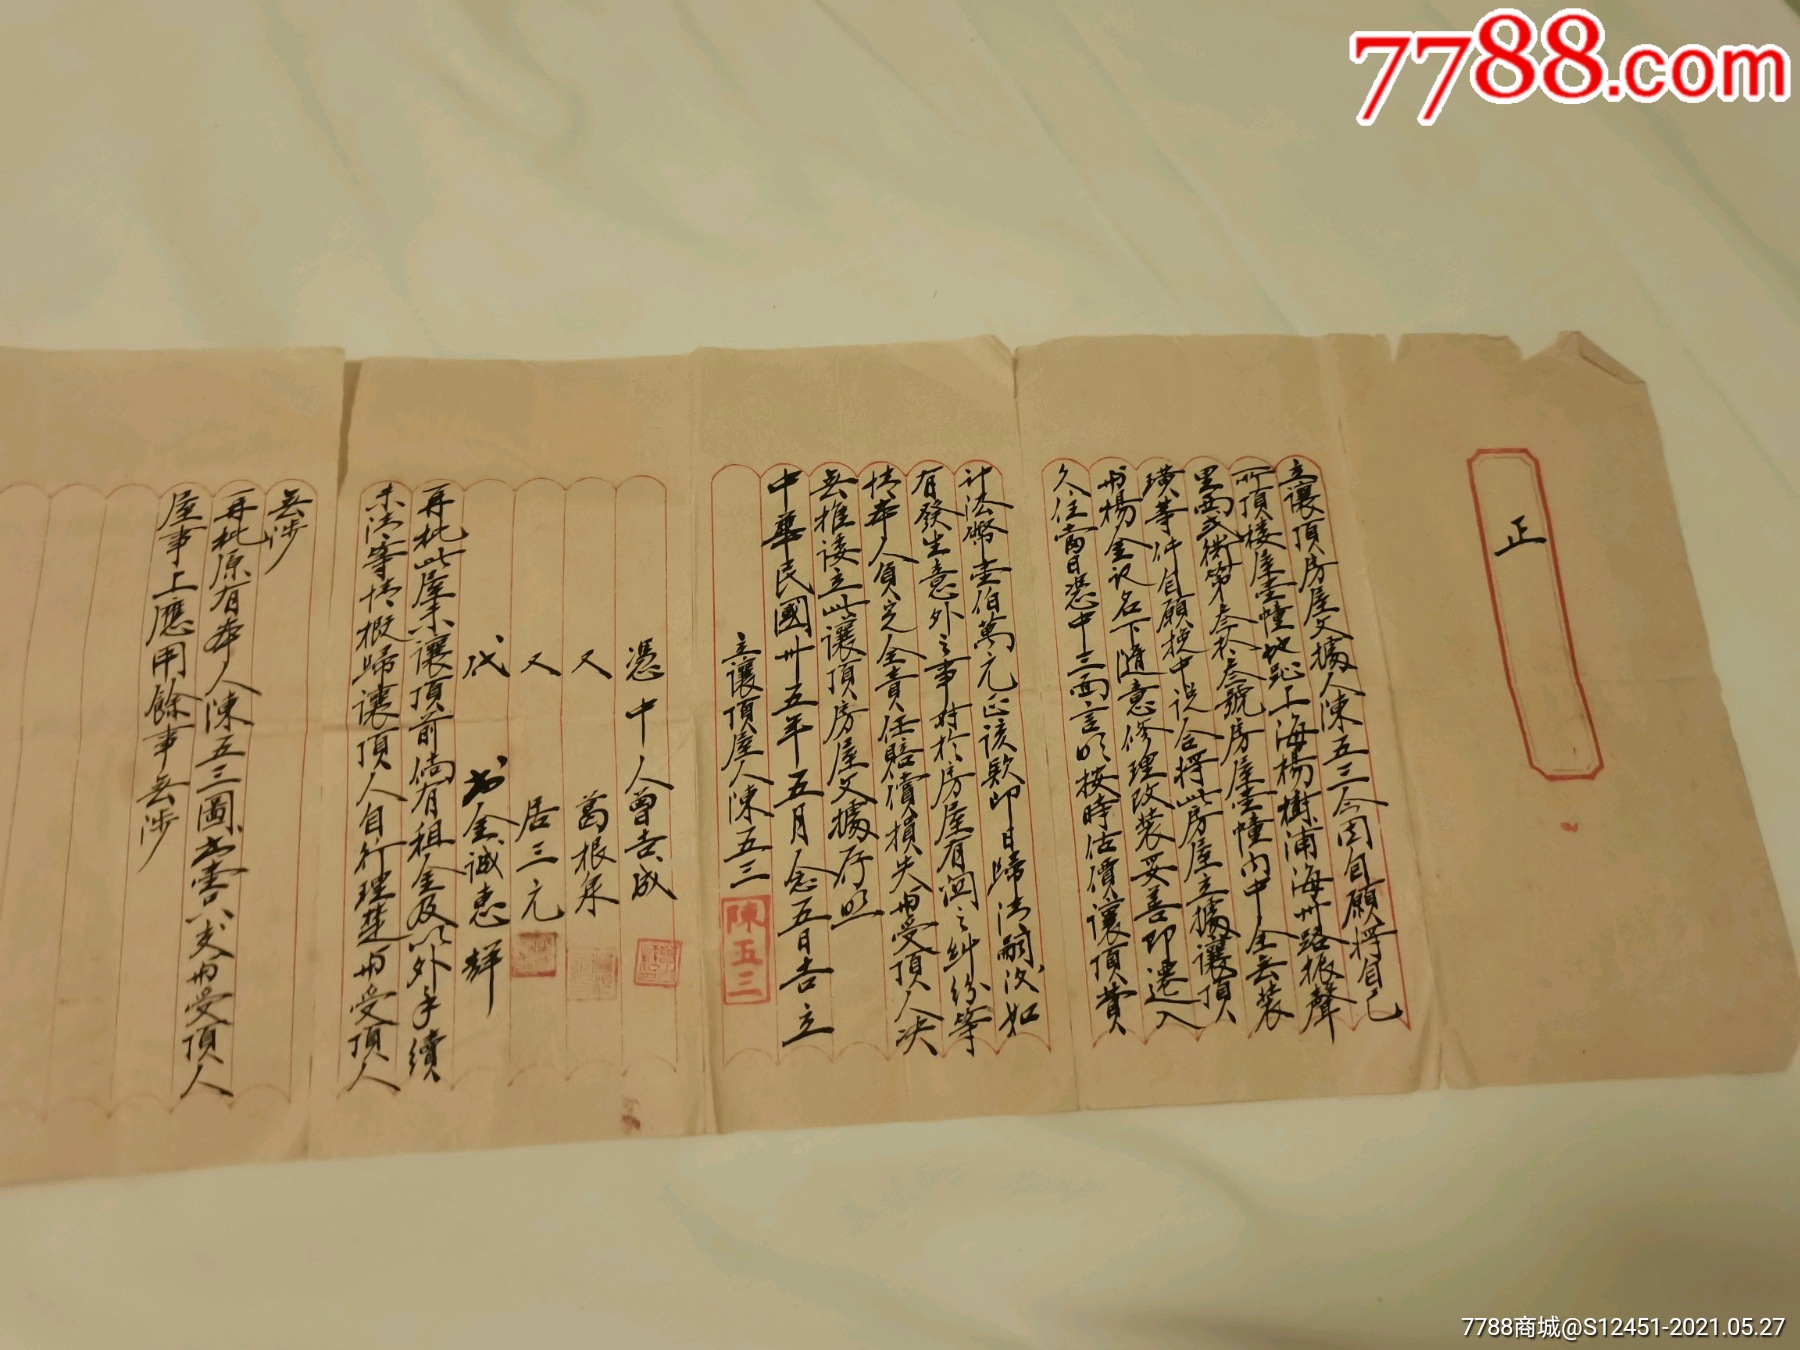 7788.com
正
立讓頂房屋文據人陳五三今因自願將自己
所頂楼屋壹幢地訨上海楊樹浦海州路振聲
里西弍衖第叁拾叁號房屋壹幢內中全云装
璜等件自願挽中説合將此房屋立據讓頂
与楊金記名下隨意修理改装妥善即遷入
久住當日憑中三面言明按時估價讓頂費
計法幣壹佰萬元正该欵即日歸清嗣後如
有發生意外之事對於房屋有関之糾纷等
情本人負完全責任賠償損失与受頂人决
無推诿立此讓頂房屋文據存照
中華民國卅五年五月念五日吉立
立讓頂屋人陳五三
陳五三
憑中人曾吉成
又 葛根
又 居三元
代 书 金誠惠 押
再批此屋未讓頂前倘有租金及以外手續
未清等情概歸讓頂人自行理楚与受頂人
無涉
再批原有本人陳五三圖書壹交与受頂人
屋事上應用餘事無涉
7788商城@S12451-2021.05.27